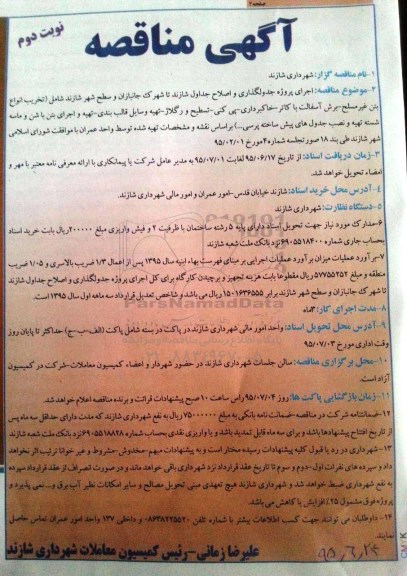 صفحه ۲
نوبت دوم
آگهی مناقصه
۱-نام مناقصه گزار: شهرداری شازند
۲-موضوع مناقصه: اجرای پروژه جدولگذاری و اصلاح جداول شازند تا شهرک جانبازان و سطح شهر شازند شامل (تخریب انواع
بتن غیرمسلح-برش آسفالت با کاتر-خاکبرداری-پی کنی-تسطیح و رگلاژ-تهیه وسایل قالب بندی-تهیه و اجرای بتن با شن و ماسه
شسته تهیه و نصب جدول های پیش ساخته پرسی...) براساس نقشه و مشخصات تهیه شده توسط واحد عمران با موافقت شورای اسلامی
شهر شازند طی بند ۱۸ صورتجلسه شماره ۴ مورخ ۹۵/۰۲/۰۱
۳-زمان دریافت اسناد: از تاریخ ۹۵/۰۶/۱۷ لغایت ۹۵/۰۷/۰۱ به مدیر عامل شرکت یا پیمانکاری با ارائه معرفی نامه معتبر با مهر و
امضاء تحویل خواهد شد.
۴-آدرس محل خرید اسناد: شازند خیابان قدس-امور عمران و امور مالی شهرداری شازند.
۵-دستگاه نظارت: شهرداری شازند
۶-مدارک مورد نیاز جهت تحویل اسناد دارای پایه ۵ رشته ساختمان با ظرفیت ۲ و فیش واریزی مبلغ ۲۰۰۰۰۰ ریال بابت خرید اسناد
بحساب جاری شماره ۶۹۰۵۵۱۸۴۰۰ نزد بانک ملت شعبه شازند
۷-بر آورد عملیات میزان بر آورد عملیات اجرایی بر مبنای فهرست بهاء ابنیه سال ۱۳۹۵ پس از اعمال ۱/۳ ضریب بالاسری و ۱/۰۵ ضریب
منطقه و مبلغ ۵۷۷۵۵۲۵۲ ریال مقطوعا بابت هزینه تجهیز و برچیدن کارگاه برای کل اجرای پروژه جدولگذاری و اصلاح جداول شازند
تا شهرک جانبازان و سطح شهر شازند برابر ۱۵۰۱۶۳۶۵۵۵ ریال می باشد و شاخص تعدیل قرارداد سه ماهه اول سال ۱۳۹۵ است.
۸-مدت اجرای کار: ۳ ماه
۹-آدرس محل تحویل اسناد: واحد امور مالی شهرداری شازند در پاکت در بسته شامل پاکت (الف-ب-ج) حداکثر تا پایان روز
وقت اداری مورخ ۹۵/۰۷/۰۳
۱۰-محل برگزاری مناقصه: سالن جلسات شهرداری شازند در حضور شهردار و اعضاء کمیسیون معاملات-شرکت در کمیسیون
آزاد است.
۱۱-زمان بازگشایی پاکت ها: روز ۹۵/۰۷/۰۴ راس ساعت ۱۰ صبح پیشنهادات قرائت و برنده مناقصه اعلام خواهد شد.
۱۲-ضمانتنامه شرکت در مناقصه-ضمانت نامه بانکی به مبلغ ۷۵۰۰۰۰۰۰ ریال به نفع شهرداری شازند که مدت دارای حداقل سه ماه پس
از تاریخ افتتاح پیشنهادها باشد و برای سه ماه قابل تمدید باشد و یا واریزی نقدی بحساب شماره ۶۹۰۵۵۱۸۸۲۸ نزد بانک ملت شعبه شازند
۱۳-شهرداری در رد یا قبول کلیه پیشنهادات رسیده مختار است و به پیشنهادات مبهم-مخدوش-مشروط و غیر خوانا ترتیب اثر نخواهد
داد و سپرده های نفرات اول-دوم و سوم تا تاریخ عقد قرارداد نزد شهرداری باقی خواهد ماند و در صورت انصراف از عقد قرارداد سپرده
به نفع شهرداری ضبط خواهد شد و شهرداری شازند هیچ تعهدی مبنی تحویل مصالح و سایر امکانات نظیر آب برق و... نمی پذیرد و
پروژه فوق مشمول ۲۵٪ افزایش یا کاهش می باشد.
۱۴-داوطلبان می توانند جهت کسب اطلاعات بیشتر با شماره تلفن ۰۸۶۳۸۲۲۵۵۲۰ و داخلی ۱۳۷ واحد امور عمران تماس حاصل
نمایند.
علیرضا زمانی-رئیس کمیسیون معاملات شهرداری شازند
۹۵,۶,۲۴
CMYK
ParsNamadData